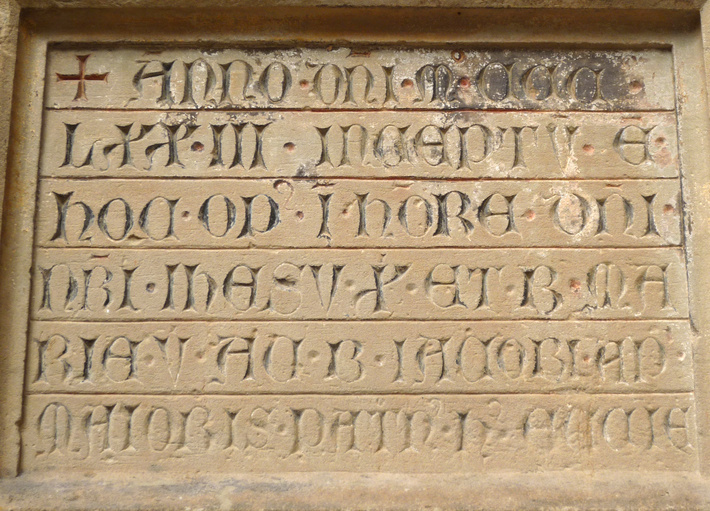 + ANNO · DNI · M · CCC ·
LXX · III · INCEPTV · E ·
HOC · OP' · I · HORE · DNI ·
NRI · IHESV · X · ET · B · MA
RIE · V · AC · B · IACOBI · AP ·
MAIORIS · PATR' · H'